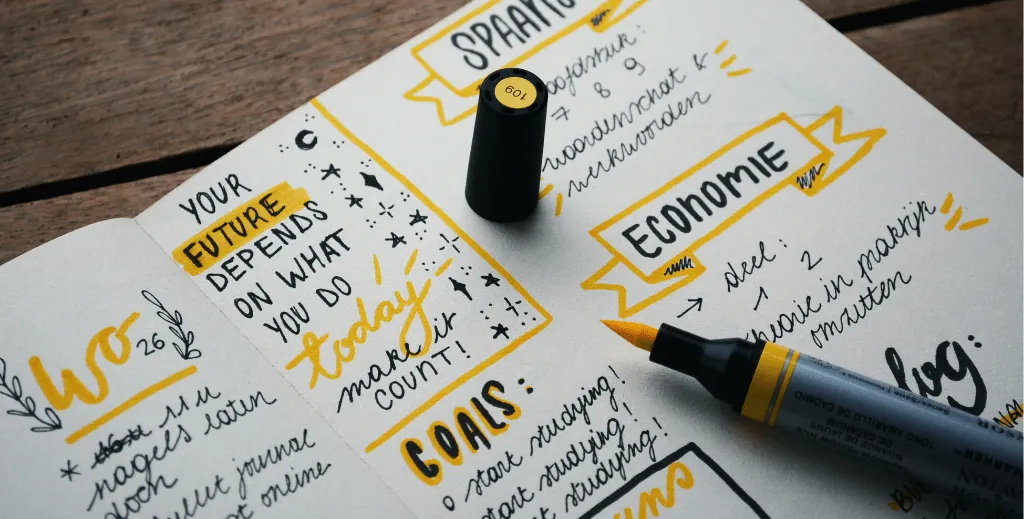 YOUR
FUTURE
DEPENDS
ON WHAT
YOU DO
today
make it
COUNT!
wo
26
11 u
nagels laten
doen
bullet journal
online
GOALS:
start studying!
start studying!
studying!
SPAANS
hoofdstuk:
7 8 9
woordenschat &
werkwoorden
109
ECONOMIE
→ deel:
1 2
theorie in praktijk
omzetten
TONO AMARILLO DE CADMIO